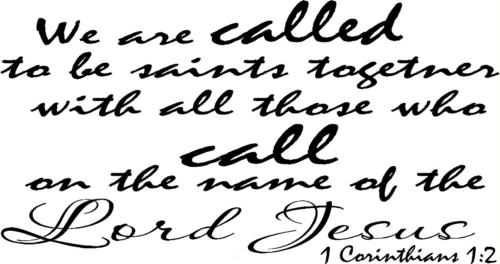 We are called
to be saints together
with all those who
call
on the name of the
Lord Jesus
1 Corinthians 1:2